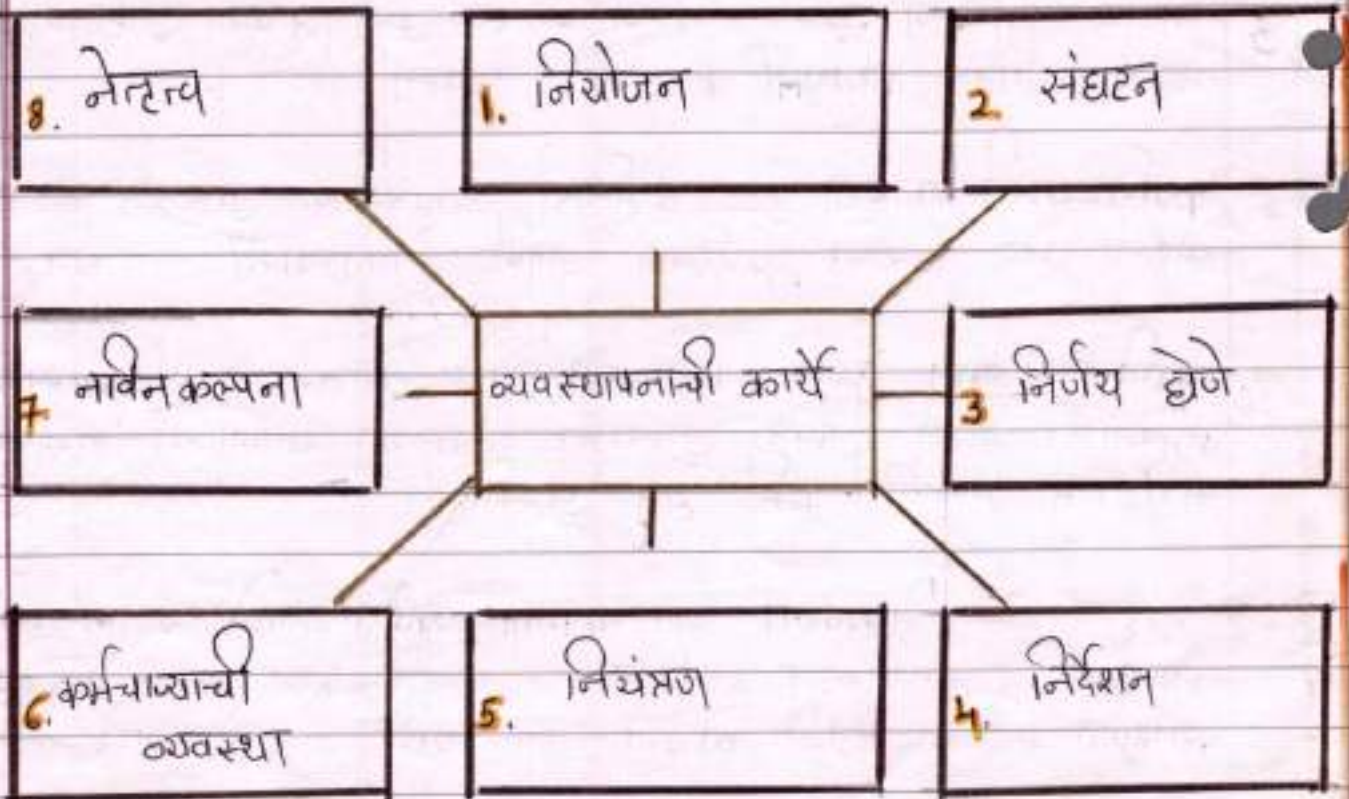 8. नेतृत्व
1. नियोजन
2. संघटन
7 नाविन कल्पना
व्यवस्थापनाची कार्ये
3 निर्णय घेणे
6. कर्मचाऱ्याची
व्यवस्था
5. नियंत्रण
4. निर्देशन